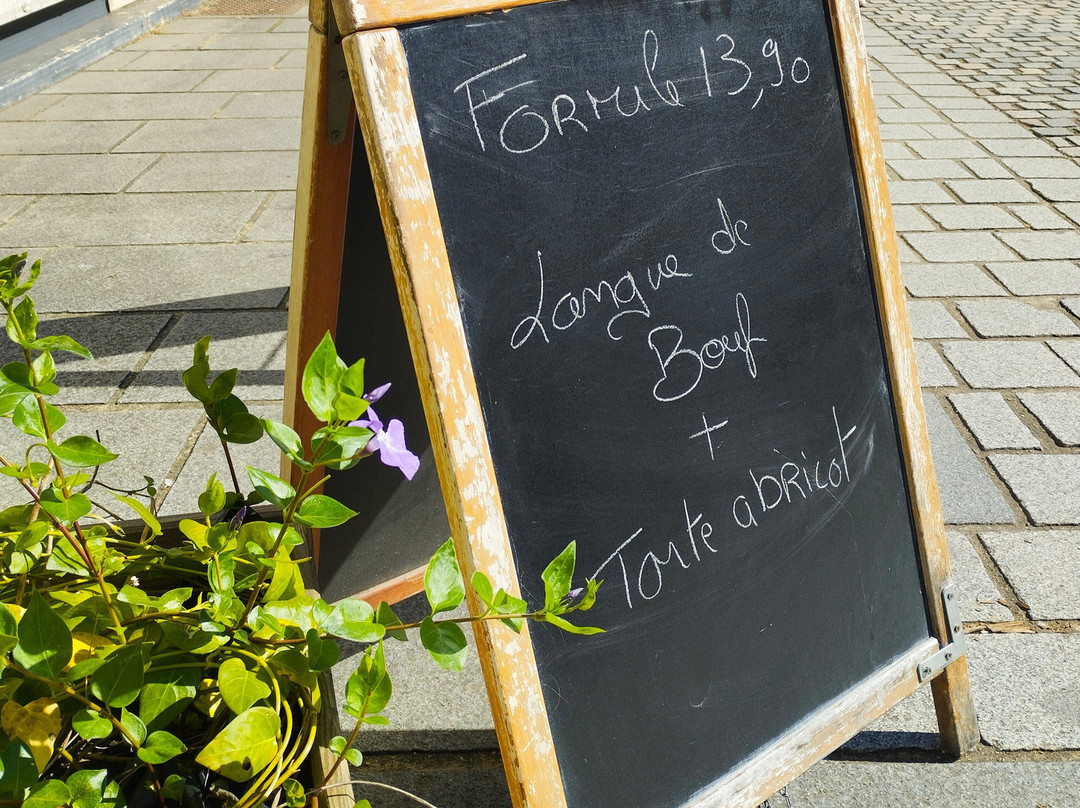 Formule 13,90
Langue de
Bœuf
+
Tarte abricot